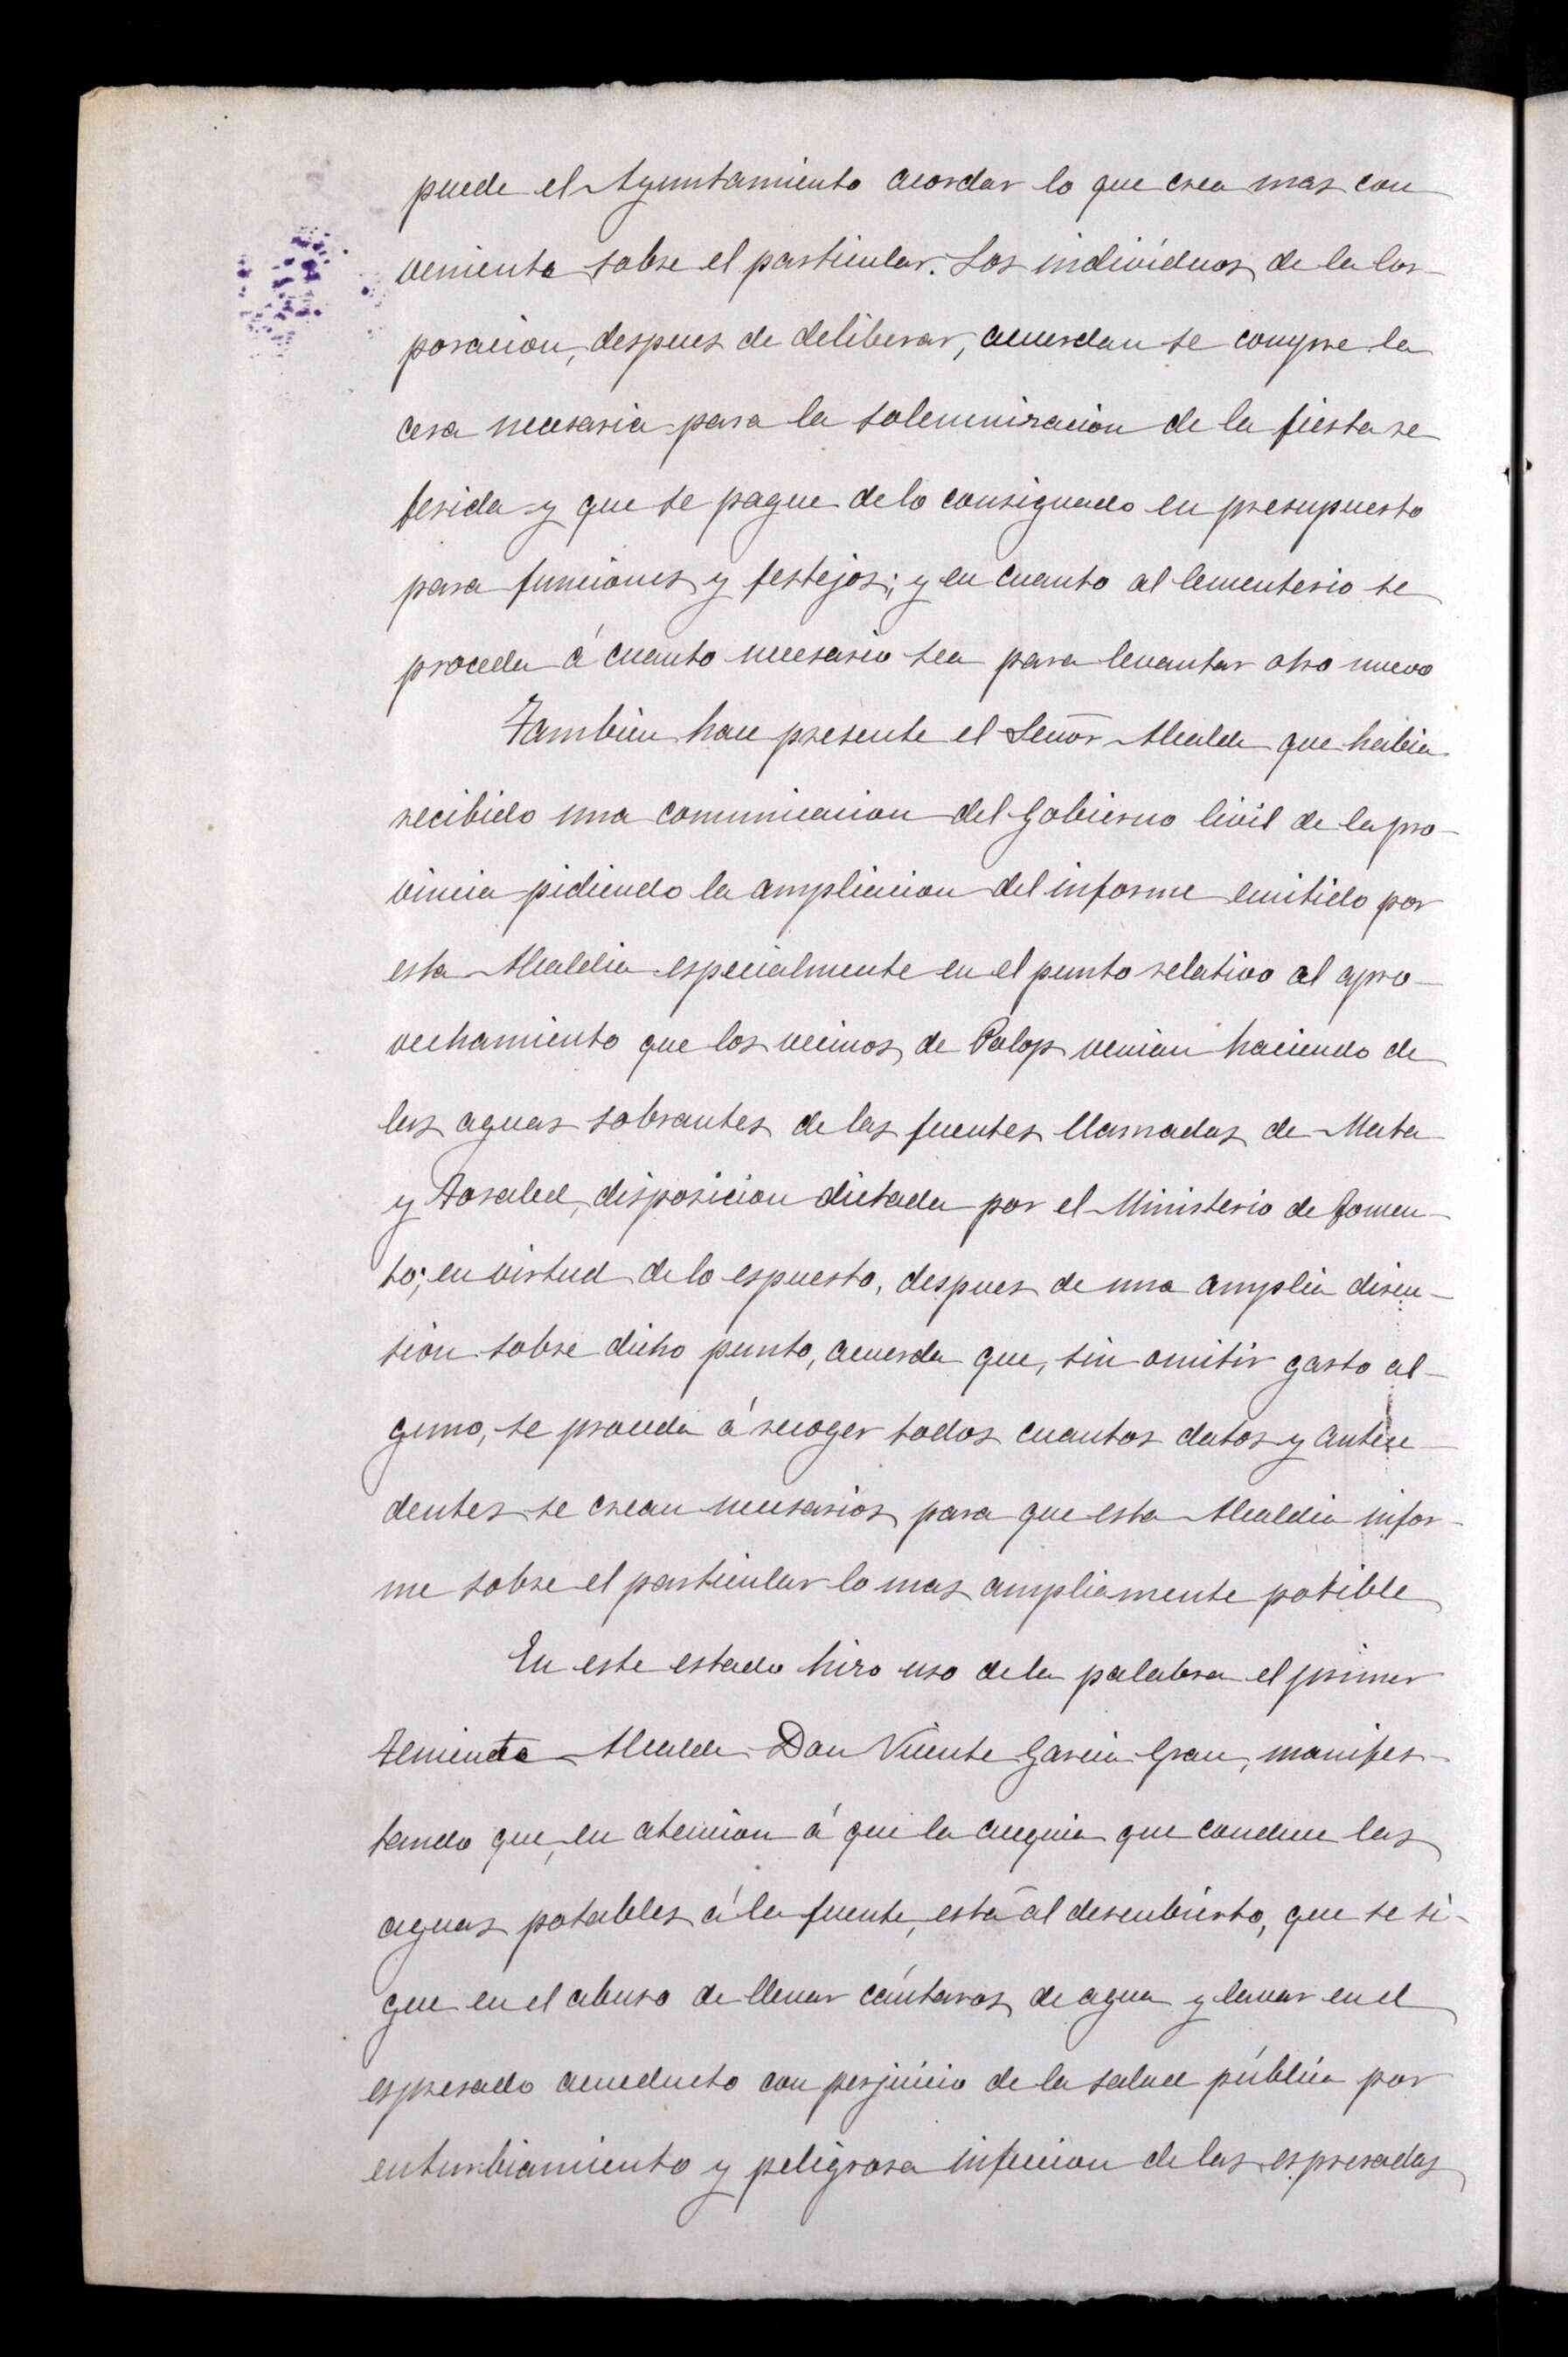 puede el Ayuntamiento acordar lo que crea mas con
veniente sobre el particular. Los indivíduos de la Cor-
poracion, despues de deliberar, acuerdan se compre la
cera necesaria para la solemnizacion de la fiesta re
ferida y que se pague de lo consignado en presupuesto
para funciones y festejos; y en cuanto al Cementerio se
proceda á cuanto necesario sea para levantar otro nuevo
Tambien hace presente el Señor Alcalde que habia
recibido una comunicacion del Gobierno Civil de la pro-
vincia pidiendo la ampliacion del informe emitido por
esta Alcaldia especialmente en el punto relativo al apro-
vechamiento que los vecinos de Polop venian haciendo de
las aguas sobrantes de las fuentes llamadas de Mata
y disposicion dictada por el Ministerio de Fomen-
to; en virtud de lo espuesto, despues de una amplia discu-
sion sobre dicho punto, acuerda que, sin omitir gasto al-
guno, se proceda á recoger todos cuantos datos y antece-
dentes se crean necesarios para que esta Alcaldia infor-
me sobre el particular lo mas ampliamente posible
En este estado hizo uso de la palabra el primer
Teniente Alcalde Don Vicente Garcia Grau, manifes-
tando que, en atencion á que la acequia que conduce las
aguas potables á la fuente, está al descubierto, que se si-
gue en el abuso de llenar cántaros de agua y lavar en el
espresado acueducto con perjuicio de la salud pública por
enturbiamiento y peligrosa infeccion de las espresadas